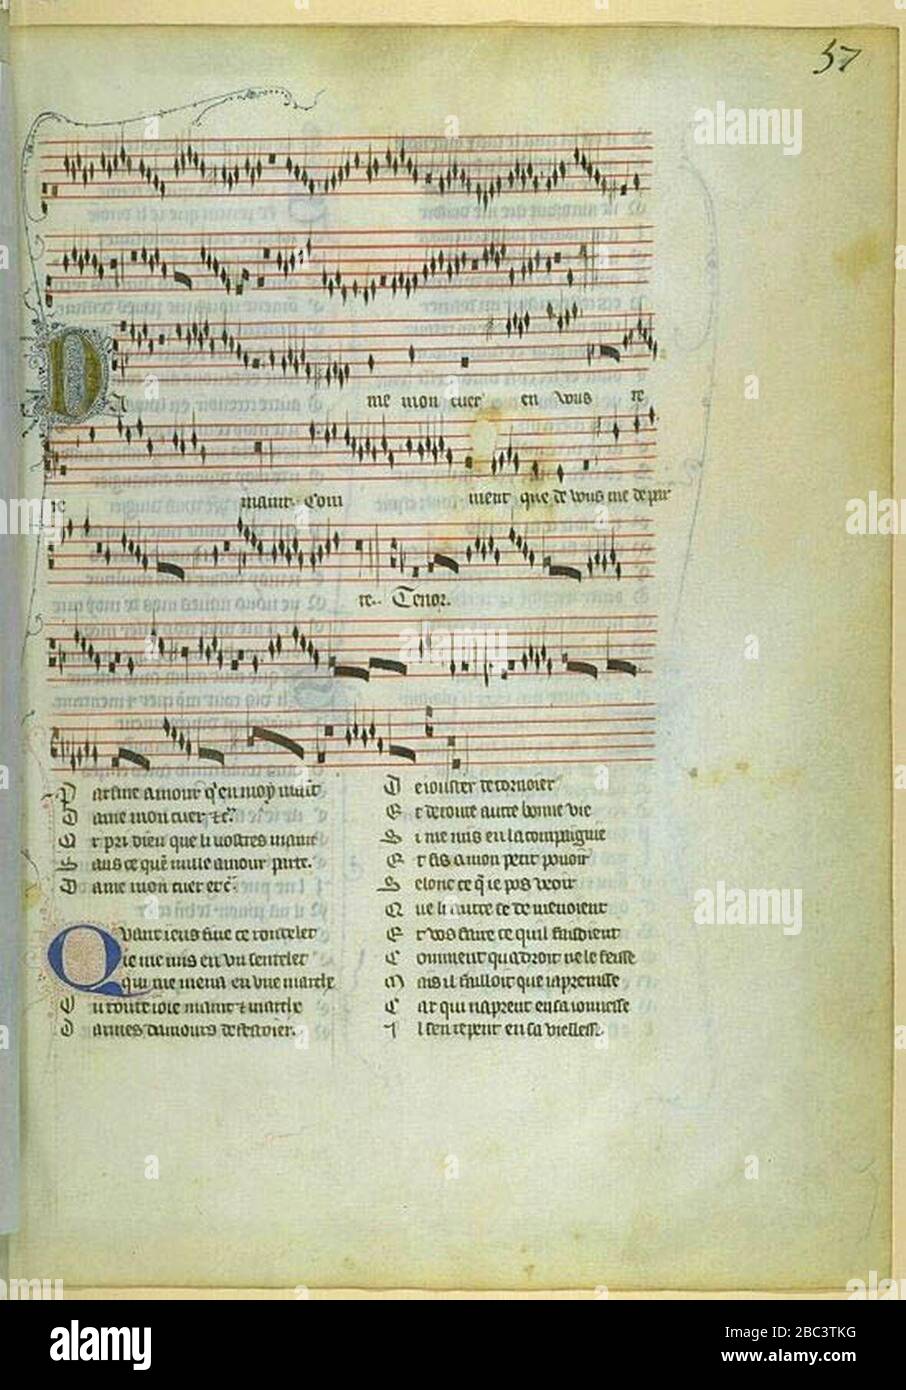 57
Dame mon cuer en vous re
re maint. Com ment que de vous me depar
te. Tenor.
Par fine amour q̃ en moy maĩt
Dame mon cuer ⁊c̃.
Et pri dieu que li vostres maint
Sans ce quẽ nulle amour parte.
Dame mon cuer et c̃.
Quant ieus fine ce rondelet
Je me mis en un sentelet
Qui me mena en une marche
Ou toute ioie maint ⁊ marche
Dames damours
De iouster de tornoier
Et de toute autre bonne vie
Si me mis en la compaignie
Et fis a mon petit pouoir
Selonc ce q̃ ie pos veoir
Que li autre ce demenoient
Et vos faire ce quil faisoient
Comment qua droit ne le feisse
Mais il failloit que iapreinsse
Car qui naprent en sa ionnesse
Il sen repent en sa viellesse.
alamy
Image ID: 2BC3TKG
www.alamy.com